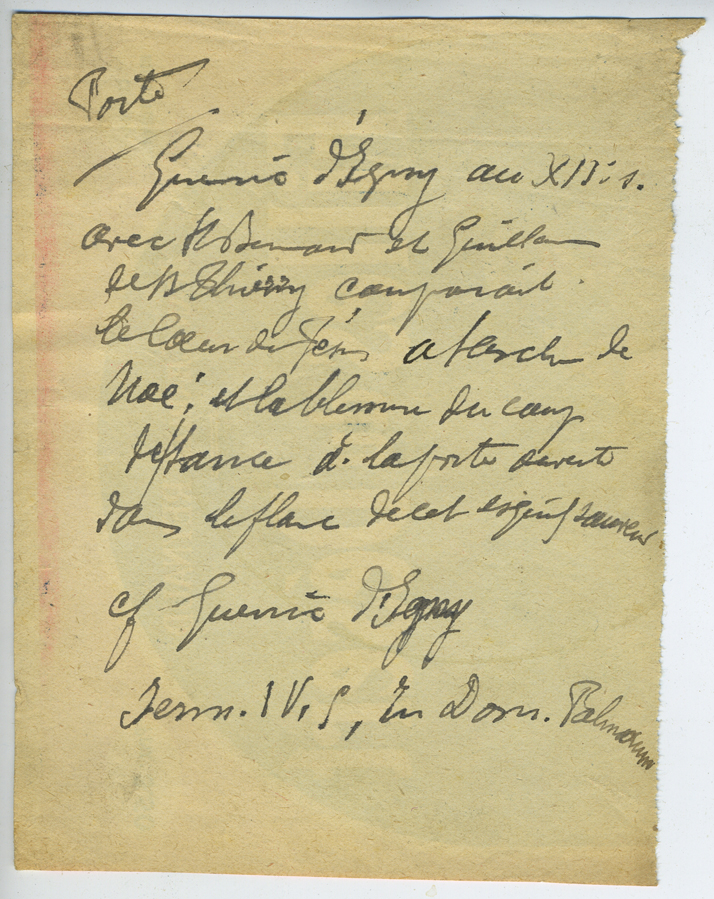 Porte
Guerric d'Igny au XII: s.
avec St Bernard et Guillaume
de St Thierry comparait
le Coeur de Jésus à l'arche de
Noé; et la blessure du coup
de lance à la porte ouverte
dans le flanc de cet esquif sauveur
cf Guerric d'Igny
Serm. IV, 5, In Dom. Palmarum